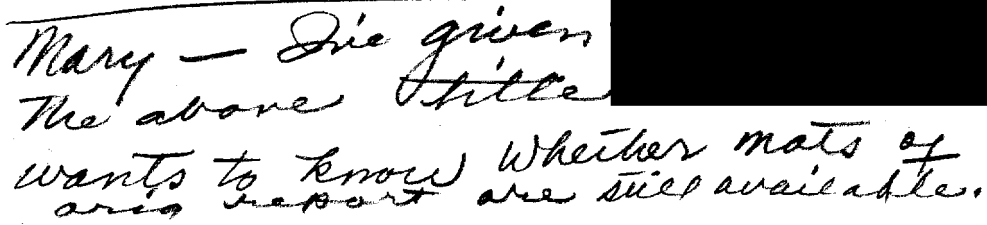 Mary — I've given
the above title
wants to know whether mats of
orig report are still available.